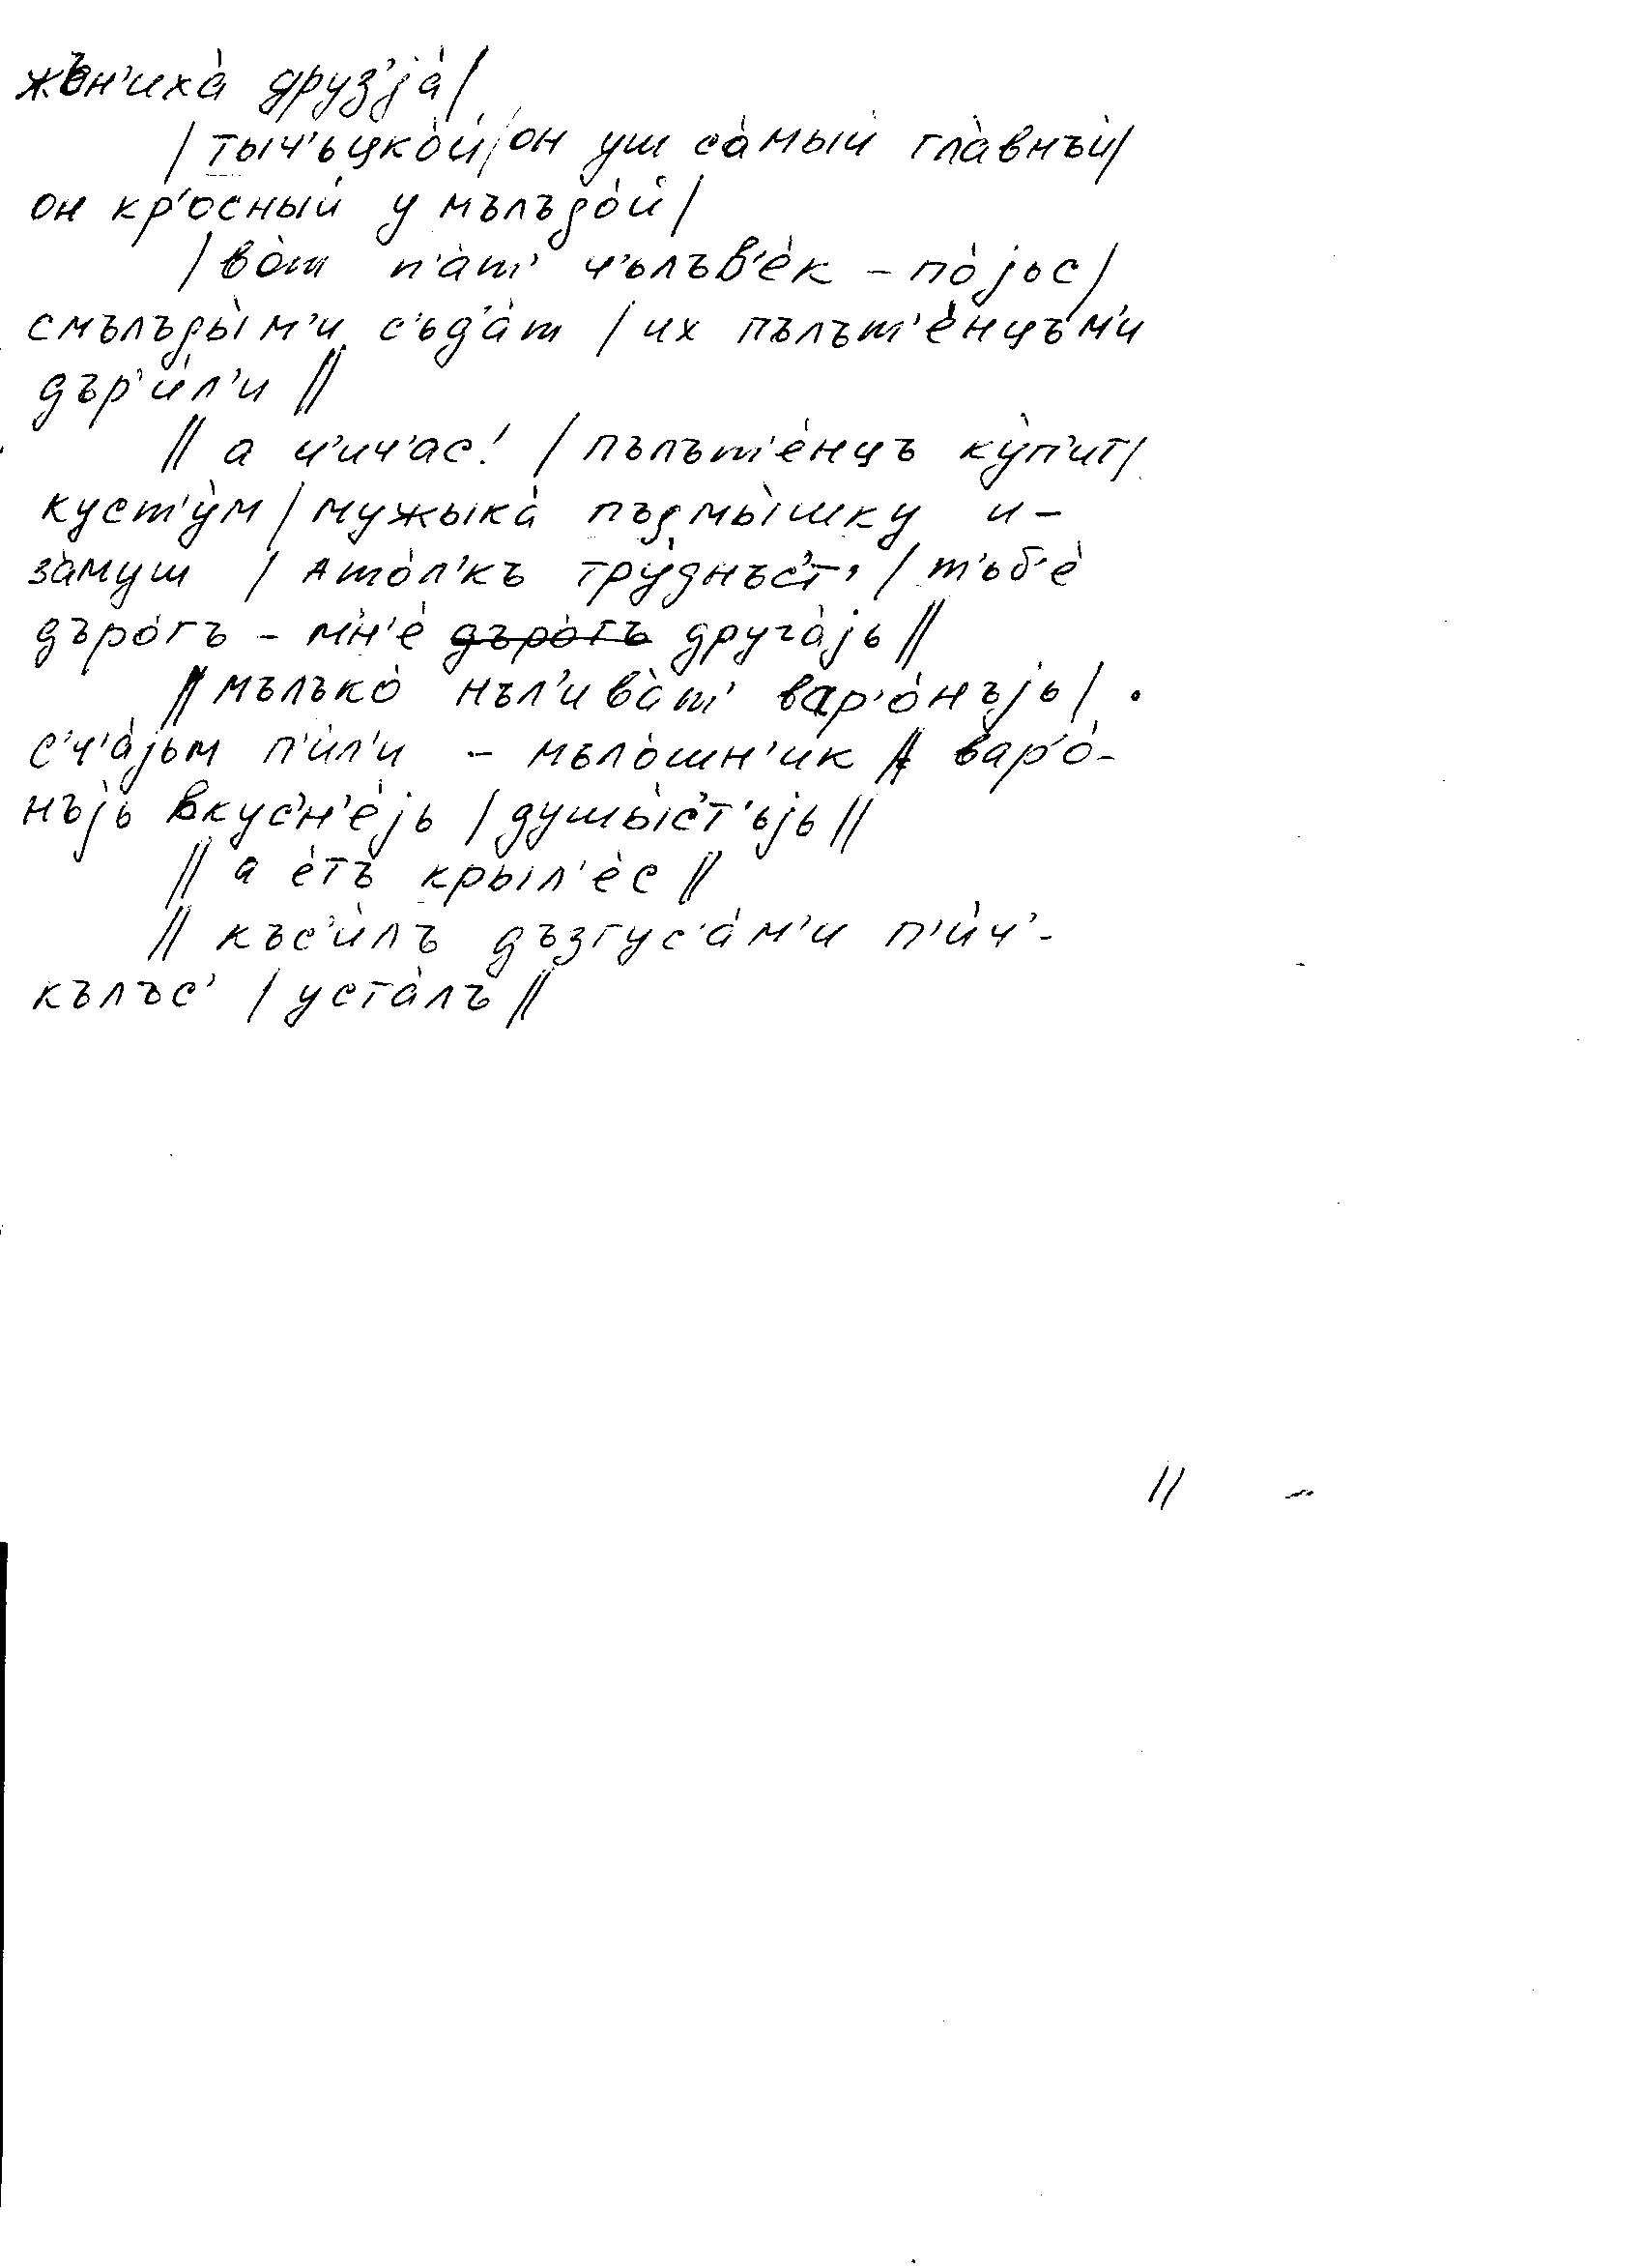 жън'иха̀ друз'jа̀/
/тыч'ьцко̀й/он уш са̀мый гла̀внъй/
он кр'осный у мълъдо̀й/
/во̀т п'а̀т' ч'ълъв'ѐк – по̀jьс/
смълъды̀м'и с'ъд'а̀т / их пълът'ѐнцъм'и
дър'ѝл'и //
// а ч'ич'ас! / пълът'ѐнцъ ку̀п'ит/
куст'у̀м / мужыка̀ пъдмы̀шку и-
за̀муш / Ато̀л'къ тру̀днъс'т' / т'ьб'ѐ
дъро̀гъ – м'н'ѐ дъро̀гъ друга̀jь //
// мълъко̀ нъл'ива̀т' вар'о̀нъjь /.
с'ч'а̀jьм п'ѝл'и – мъло̀шн'ик // вар'о̀-
нъjь вкус'н'ѐjь / душы̀с'т'ьjь //
// а ѐтъ крыл'ѐс //
// къс'ѝлъ дъзгус'а̀м'и п'ѝч'-
кълъс' / уста̀лъ //
// –